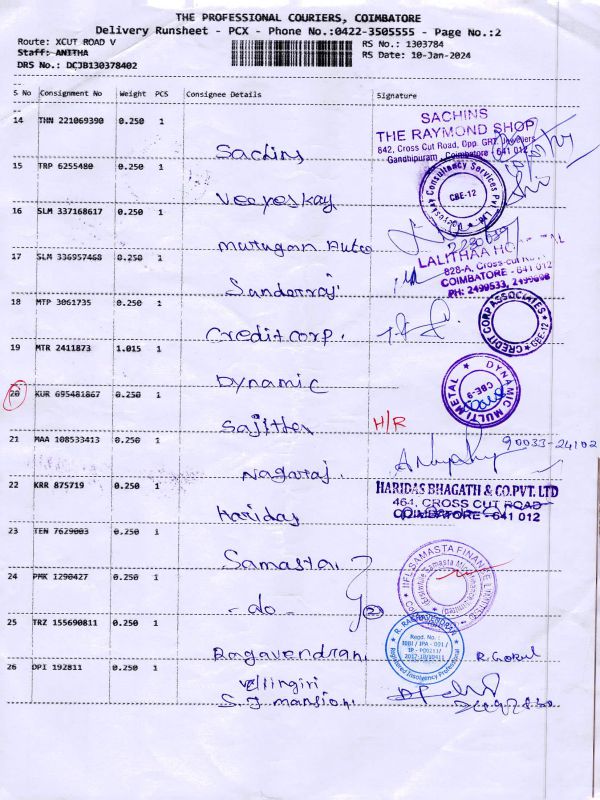 THE PROFESSIONAL COURIERS, COIMBATORE
Delivery Runsheet - PCX - Phone No.:0422-3505555 - Page No.:2
Route: XCUT ROAD V RS No.: 1303784
Staff: ANITHA RS Date: 10-Jan-2024
DRS No.: DCJB130378402
S No Consignment No Weight PCS Consignee Details Signature
14 THN 221069390 0.250 1
Sachins
SACHINS
THE RAYMOND SHOP
842, Cross Cut Road, Opp. GRT. Jewellers
Gandhipuram, Coimbatore - 641 012
15 TRP 6255480 0.250 1
Veeyeskay
Veeyeskay Consultancy Services Pvt Ltd
CBE-12
16 SLM 337168617 0.250 1
Murugan Auto
17 SLM 336957468 0.250 1
Sanderraj
LALITHAA
828-A, Cross-cut
COIMBATORE - 641 012
PH: 2499533,
18 MTP 3061735 0.250 1
Creditcorp.
CREDIT CORP ASSOCIATES
CBE-12
19 MTR 2411873 1.015 1
Dynamic
DYNAMIC MULTIMETAL
CBE-9
20 KUR 695481867 0.250 1
Sajither
H/R
21 MAA 108533413 0.250 1
Nagaraj.
90033-24102
22 KRR 875719 0.250 1
Haridas
HARIDAS BHAGATH & CO.PVT. LTD
464, CROSS CUT ROAD
COIMBATORE - 641 012
23 TEN 7629003 0.250 1
Samasta
IIFL SAMASTA FINANCE LIMITED
24 PMK 1290427 0.250 1
- do -
2
25 TRZ 155690811 0.250 1
Ragavendran
R. RAGHAVENDRAN
Regd. No. :
IBBI / IPA - 001 /
Registered Insolvency Professional
R. Gokul
26 OPI 192811 0.250 1
Vellingiri
S.J. mansion.